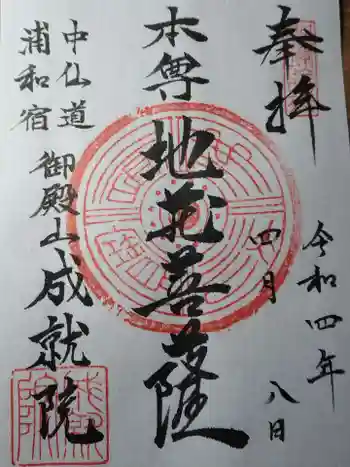 奉拝
令和四年
四月
八日
本尊
地蔵菩薩
中仙道
浦和宿
御殿山成就院